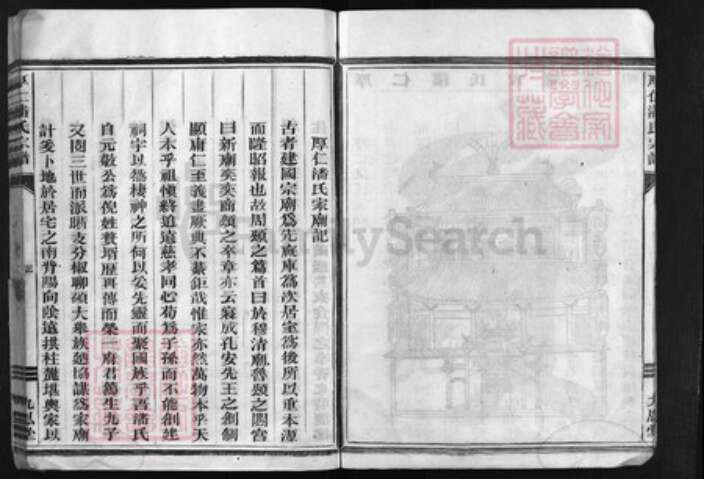 厚仁潘氏家廟記
古者建國宗廟爲先廐庫爲次居室爲後所以重本源
而隆昭報也故周頌之篇首曰於穆清廟魯頌之閟宫
曰新廟奕奕商頌之卒章亦云寢成孔安先王之創制
顯庸仁至義盡厥典不綦鉅哉惟家亦然萬物本乎天
人本乎祖愼終追遠慈孝同心苟爲子孫而不能創建
祠宇以爲棲神之所何以妥先靈而聚國族乎吾潘氏
自元敬公爲倪姓贅壻歷再傳而榮一府君篤生九子
又閱三世而派䏈支分椒聊碩大舉族趨協謀爲家廟
計爰卜地於居宅之南背陽向陰遠拱柱麓堪輿家以
潘氏宗譜
厚仁潘氏
FamilySearch